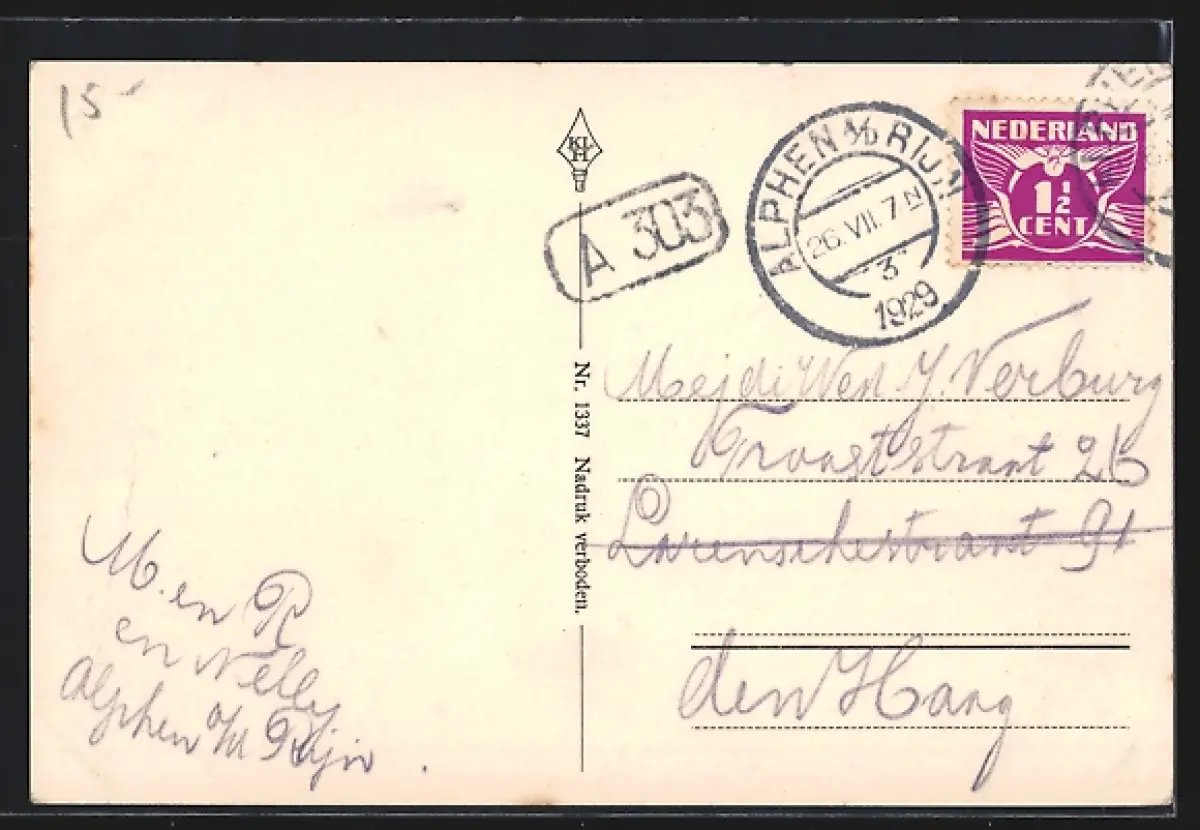 15-
KLH
A 303
ALPHEN A/D RIJN
26.VII. 7 N
3
1929
NEDERLAND
1½
CENT
Nr. 1337 Nadruk verboden.
Mejd. Wed. J. Verburg
Trooststraat 26
Larenschestraat 91
den Haag
M. en R
en Nelly
Alphen a/d Rijn.